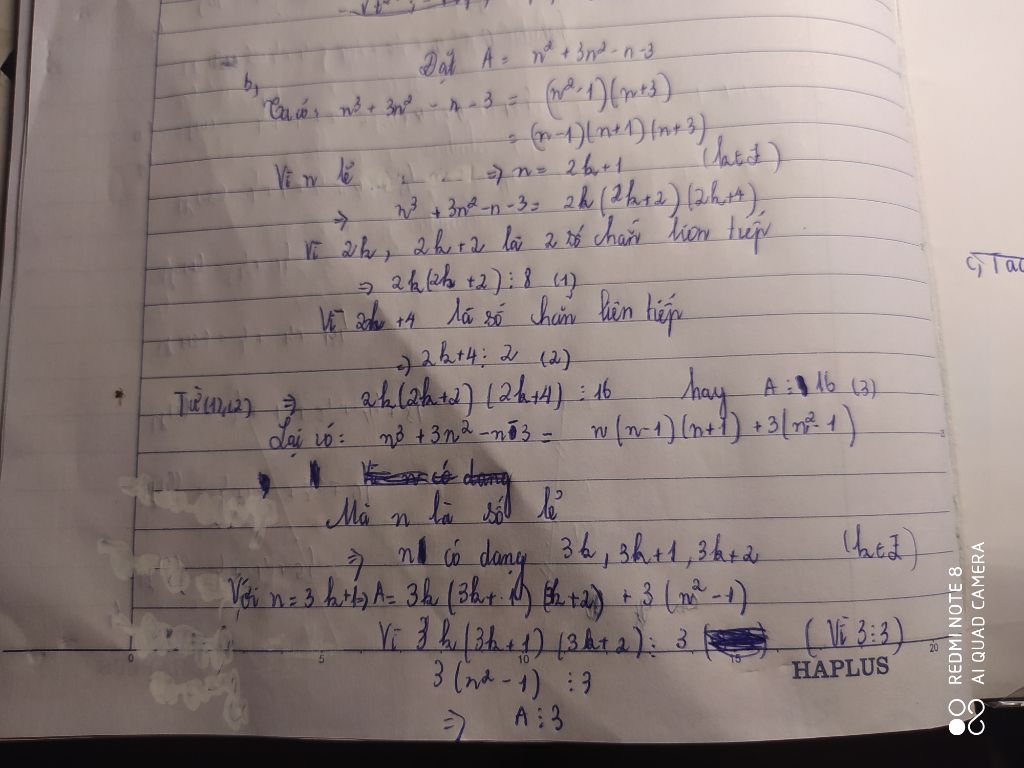 Đặt A = n² + 3n² - n - 3
b,
Ta có: n³ + 3n² - n - 3 = (n² - 1)(n+3)
= (n-1)(n+1)(n+3)
Vì n lẻ ⇒ n = 2k+1 (k∈Z)
⇒ n³ + 3n² - n - 3 = 2k(2k+2)(2k+4)
Vì 2k, 2k+2 là 2 số chẵn liên tiếp
⇒ 2k(2k+2) ⋮ 8 (1)
Vì 2k+4 là số chẵn liên tiếp
⇒ 2k+4 ⋮ 2 (2)
Từ (1),(2) ⇒ 2k(2k+2)(2k+4) ⋮ 16 hay A ⋮ 16 (3)
Lại có: n³ + 3n² - n - 3 = n(n-1)(n+1) + 3(n² - 1)
Vì n có dạng
Mà n là số lẻ
⇒ n có dạng 3k, 3k+1, 3k+2 (k∈Z)
Với n = 3k+1 ⇒ A = 3k(3k+1)(3k+2) + 3(n² - 1)
Vì 3k(3k+1)(3k+2) ⋮ 3 (Vì 3 ⋮ 3)
3(n² - 1) ⋮ 3
⇒ A ⋮ 3
c, Ta c
0 5 10 15 20
HAPLUS
REDMI NOTE 8
AI QUAD CAMERA